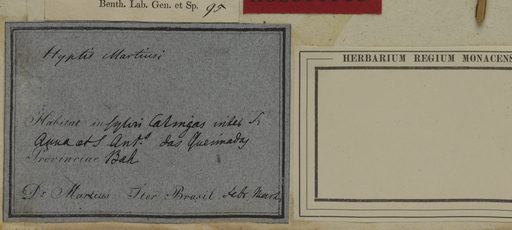 Benth. Lab. Gen. et Sp. 95
HERBARIUM REGIUM MONACENS
Hyptis Martiusi
Habitat in sylvis Catingas inter S.
Anna et S. Ant.º das Queimadas
Provinciae Bah.
Dr. Martius Iter Brasil. febr Mart.